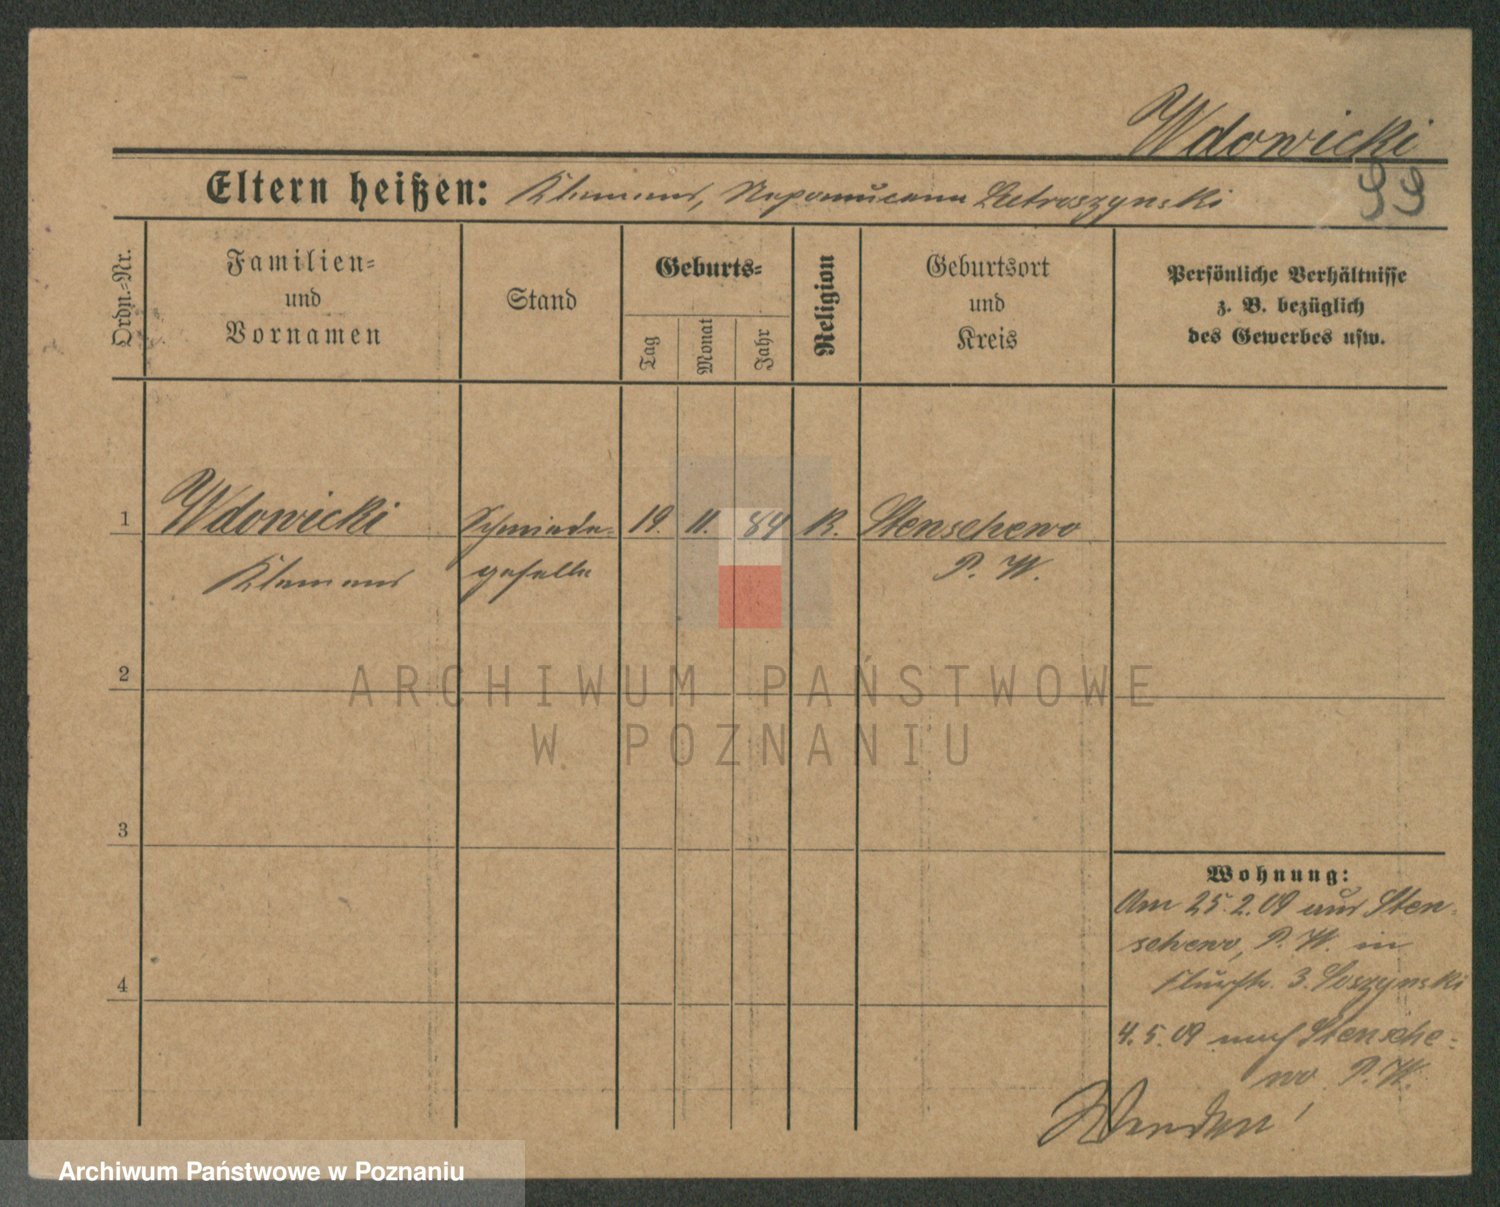 Wdowicki
Eltern heißen: Klemens, Nepomucena Pietroszynski
99
Ordn.-Nr.
Familien-
und
Vornamen
Stand
Geburts-
Tag
Monat
Jahr
Religion
Geburtsort
und
Kreis
Persönliche Verhältnisse
z. B. bezüglich
des Gewerbes usw.
1 Wdowicki Schmiede- 19. 11. 84 K. Stenschewo
Klemens geselle P. W.
2
3
4
Wohnung:
Am 25.2.09 aus Sten-
schewo, P. W. in
3. Loszynski
4.5.09 nach Stensche-
wo P. W.
Wenden!
ARCHIWUM PAŃSTWOWE
W POZNANIU
Archiwum Państwowe w Poznaniu